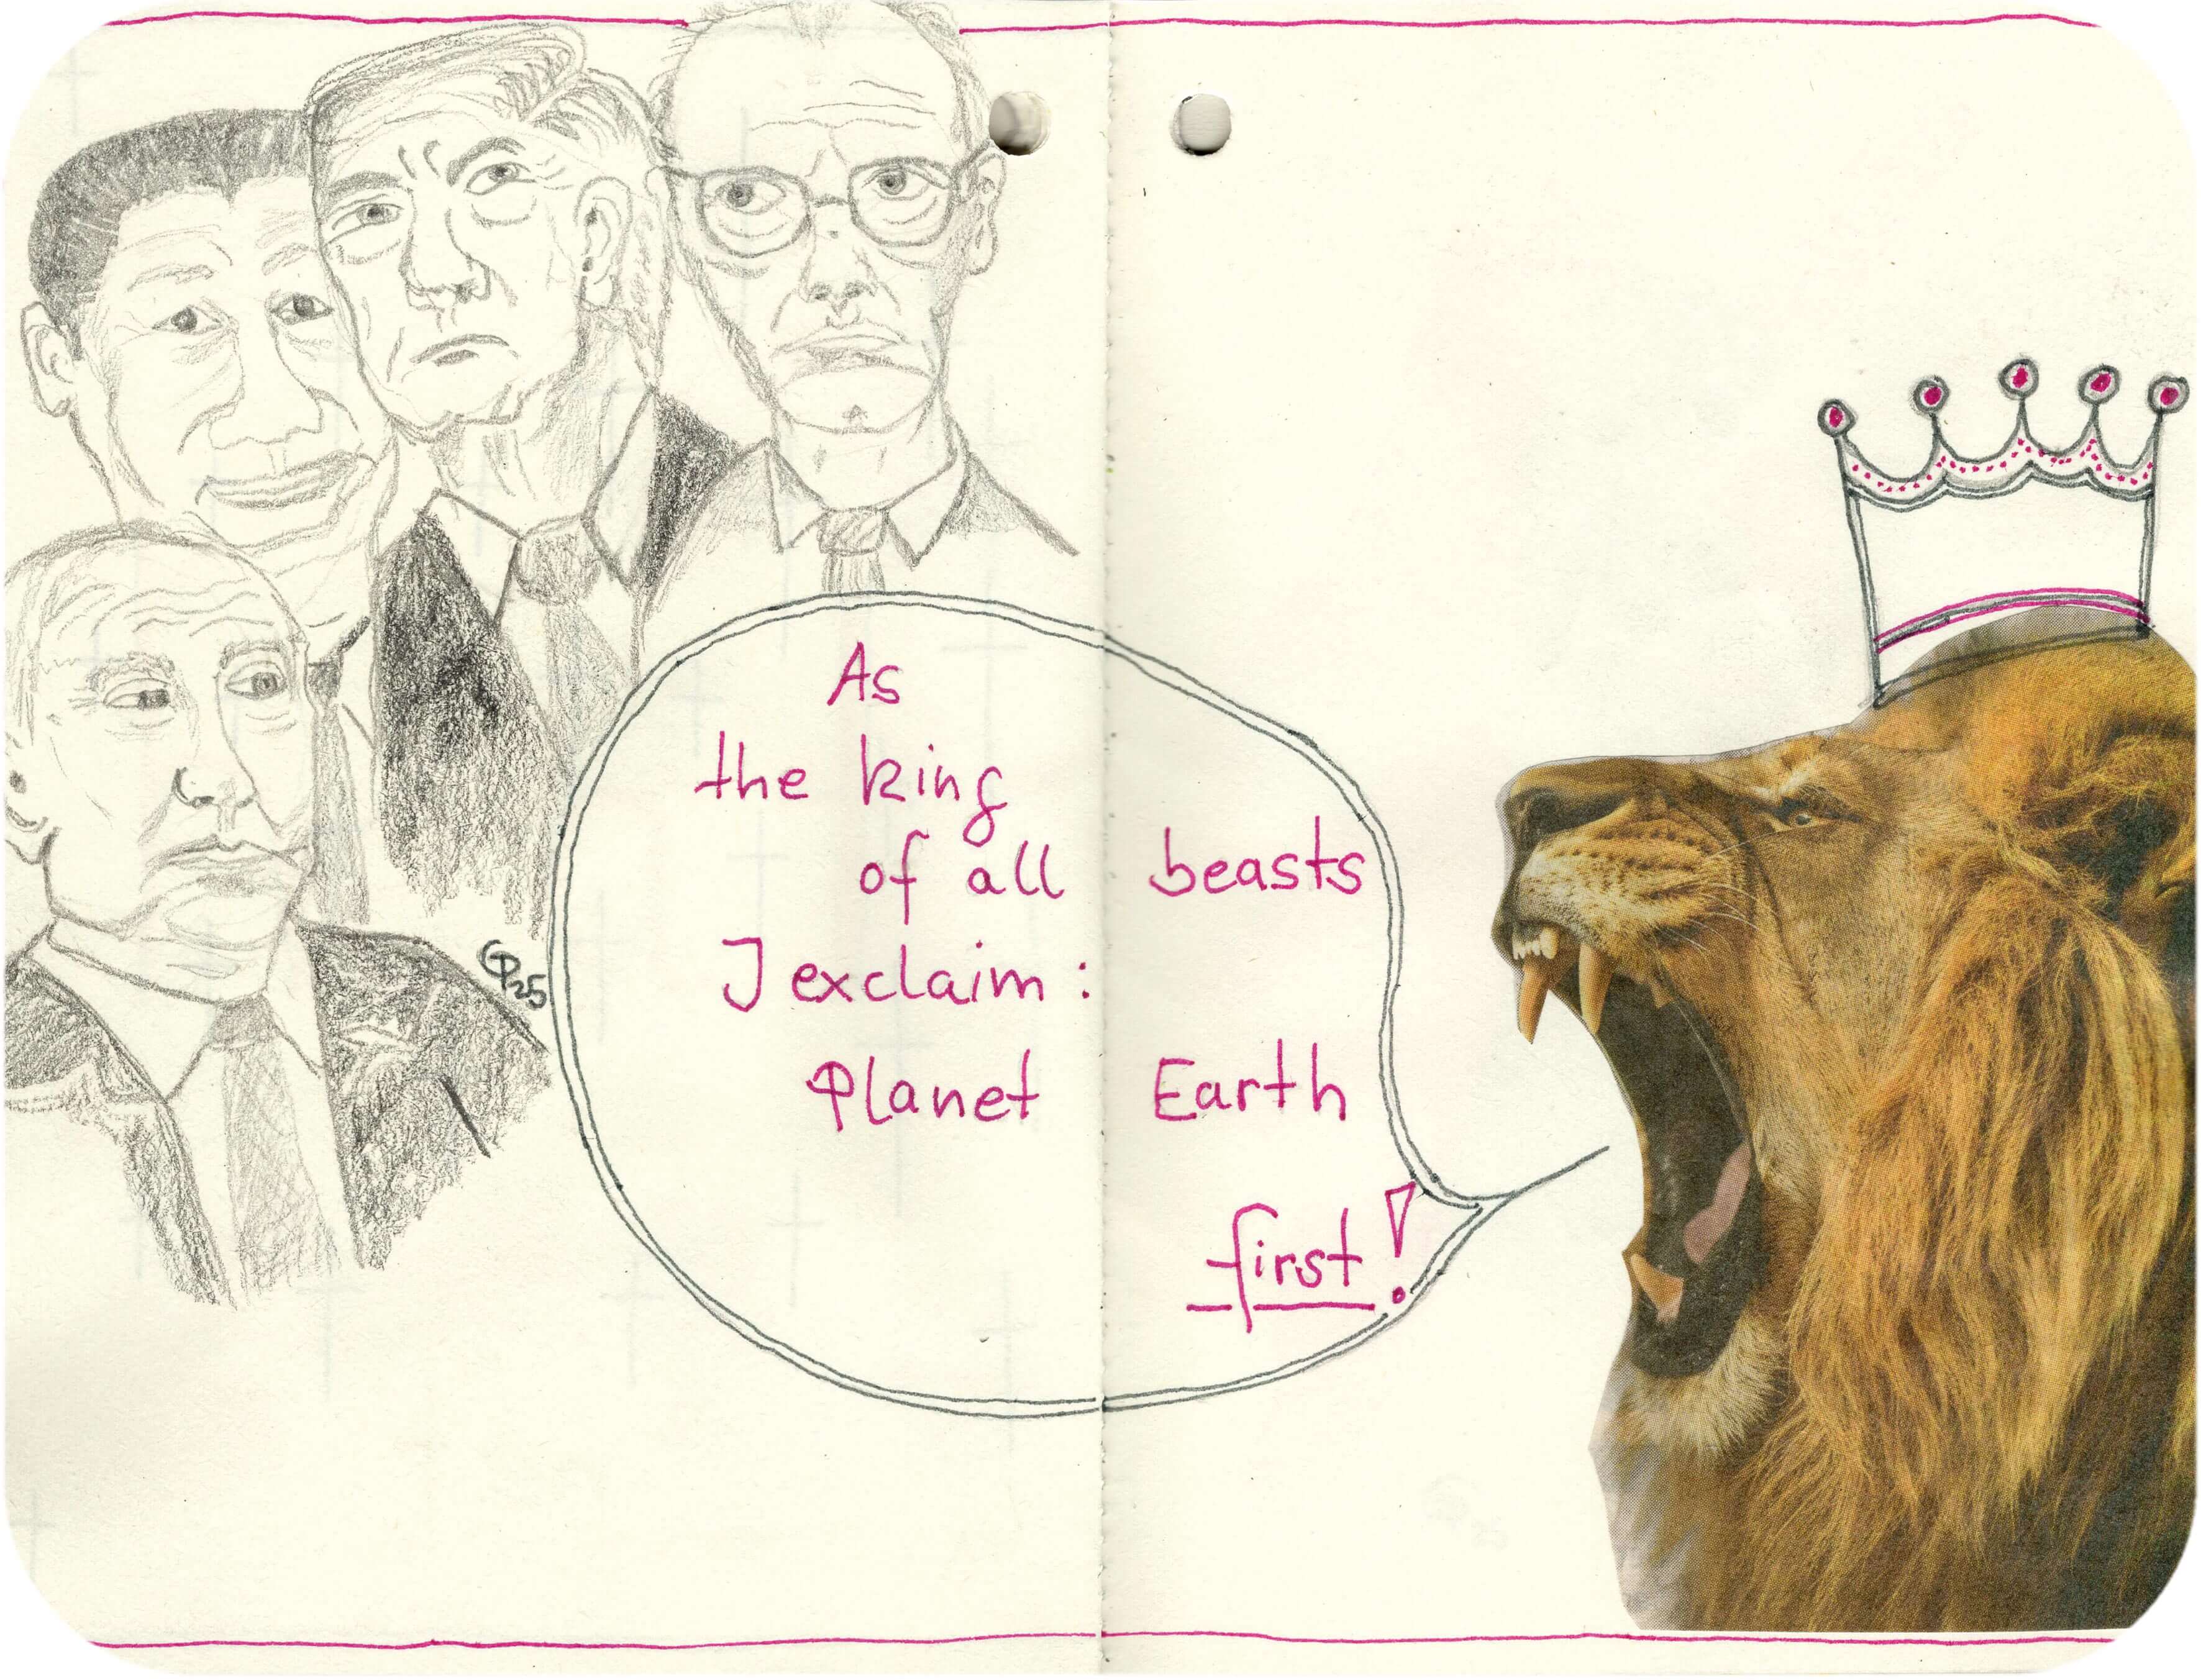 As
the king
of all beasts
I exclaim:
Planet Earth
first!
GP25